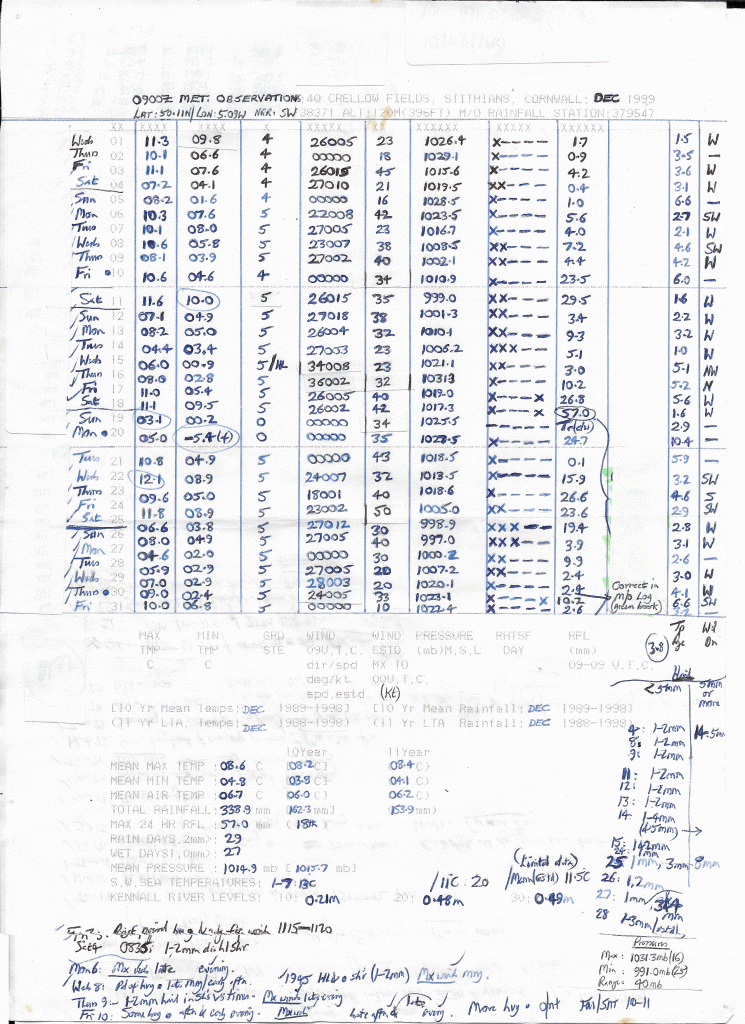 0900Z MET. OBSERVATIONS: 40 CRELLOW FIELDS, STITHIANS, CORNWALL: DEC 1999
LAT: 50.11N/LON: 5.09W NGR: SW 38371 ALT:120M(396FT) M/O RAINFALL STATION:379547
XX XXXXX XXXX X XXXXX XX XXXXXX XXXXX XXXXXX
Wed 01 11.3 09.8 4 26005 23 1026.4 X---- 1.7 1.5 W
Thur 02 10.1 06.6 4 00000 18 1029.1 X---- 0.9 3.5 —
Fri 03 11.1 07.6 4 26015 45 1015.6 X---- 4.2 3.6 W
Sat 04 07.2 04.1 4 27010 21 1019.5 XX--- 0.4 3.1 W
Sun 05 08.2 01.6 4 00000 16 1028.5 X---- 1.0 6.6 —
Mon 06 10.3 07.6 5 22008 42 1023.5 X---- 5.6 2.7 SW
Tues 07 10.1 08.0 5 27005 23 1016.7 X---- 4.0 2.1 W
Wed 08 10.6 05.8 5 23007 38 1008.5 XX--- 7.2 4.6 SW
Thur 09 08.1 03.9 5 27002 40 1002.1 XX--- 4.4 4.2 W
Fri 10 10.6 04.6 4 00000 34 1010.9 X---- 23.5 6.0 —
Sat 11 11.6 10.0 5 26015 35 999.0 XX--- 29.5 1.6 W
Sun 12 07.1 04.9 5 27018 38 1001.3 XX--- 3.4 2.2 W
Mon 13 08.2 05.0 5 26004 32 1010.1 XX--- 9.3 3.2 W
Tues 14 04.4 03.4 5 27003 23 1006.2 XXX-- 5.1 1.0 W
Wed 15 06.0 00.9 5/HL 34008 23 1021.1 XX--- 3.0 5.1 NW
Thur 16 08.0 02.8 5 36002 32 1031.3 X---- 10.2 5.2 N
Fri 17 11.0 05.4 5 26005 40 1019.0 X----X 26.8 5.6 W
Sat 18 11.1 09.5 5 26002 42 1017.3 X----X 57.0 1.6 W
Sun 19 03.1 00.2 0 00000 34 1025.5 ----- Tr(dw) 2.9 —
Mon 20 05.0 -5.4(f) 0 00000 35 1027.5 X---- 24.7 10.4 —
Tues 21 10.8 04.9 5 00000 43 1018.5 X---- 0.1 5.9 —
Wed 22 12.1 08.9 5 24007 32 1013.5 X---- 15.9 3.2 SW
Thur 23 09.6 05.0 5 18001 40 1018.6 X---- 26.6 4.6 S
Fri 24 11.8 08.9 5 23002 50 1005.0 X---- 23.6 2.9 SW
Sat 25 06.6 03.8 5 27012 30 998.9 XXX-- 19.4 2.8 W
Sun 26 08.0 04.9 5 27005 40 997.0 XXX-- 3.9 3.1 W
Mon 27 04.6 02.0 5 00000 30 1000.2 XX--- 9.9 2.6 —
Tues 28 05.9 02.9 5 27005 20 1007.2 XX--- 2.4 3.0 W
Wed 29 07.0 02.9 5 28003 20 1020.1 X---- 2.4 4.1 W
Thur 30 09.0 02.4 5 24005 33 1023.1 X----X 10.2 6.6 SW
Fri 31 10.0 06.8 5 00000 10 1022.4 X---- 2.6 3.2 —
Correct in M/O Log (green book)
MAX MIN GRD WIND WIND PRESSURE RHTSF RFL
TMP TMP STE 09U.T.C. ESTD (mb)M.S.L DAY (mm)
C C dir/spd MX TO 09-09 U.T.C.
deg/kt 00U.T.C.
spd.estd (Kt)
3.8
[10 Yr Mean Temps: DEC 1989-1998] [10 Yr Mean Rainfall: DEC 1989-1998]
(11 Yr LTA, Temps: DEC 1988-1998) (11 Yr LTA Rainfall: DEC 1988-1998)
10Year 11Year
MEAN MAX TEMP :08.6 C [08.2 C] (08.4 C)
MEAN MIN TEMP :04.8 C [03.8 C] (04.1 C)
MEAN AIR TEMP :06.7 C [06.0 C] (06.2 C)
TOTAL RAINFALL:338.9 mm [162.3 mm] (153.9 mm)
MAX 24 HR RFL :57.0 mm [18th]
RAIN DAYS,.2mm>:29
WET DAYS1,0mm>:27
MEAN PRESSURE :1014.9 mb [1015.7 mb]
S.W.SEA TEMPERATURES: 1-7: 13C /11C: 20 (Limited data) Mean(Estd) 11.5C
KENNALL RIVER LEVELS: 10: 0.21m 20: 0.48m 30: 0.49m
Hail
<5mm 5mm or more
4: 1-2mm 14: 5mm
8: 1-2mm
9: 1-2mm
11: 1-2mm
12: 1-2mm
13: 1-2mm
14: 1-4mm
15: 1-2mm
25 1mm, 3mm-8mm
26: 1,2mm
27: 1mm
28 1-3mm
Pressures
Max: 1031.3mb(16)
Min: 991.0mb(25)
Range: 40mb
1115-1120
Sat4 0835: 1-2mm diam hail shr
Mon 6: Mx winds late evening.
1945 Hail shr (1-2mm) Mx wind mng.
Thur 9:- 1-2mm hail in shrs Mx winds late evening
Fri 10: Some hvy aftn & early evening. Mx wds late aftn & evng. More hvy Fri/SAT 10-11